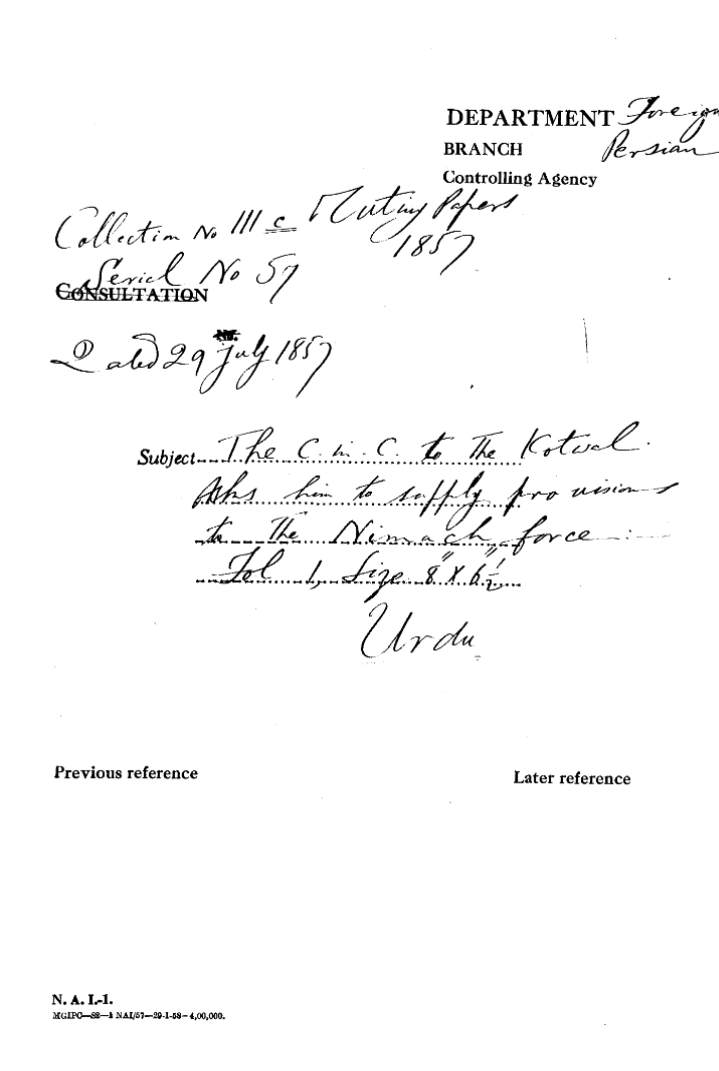 DEPARTMENT Foreign
BRANCH Persian
Controlling Agency
Collection No III c Mutiny Papers
1857
Serial No 57
CONSULTATION
Dated 29 July 1857
Subject The C. in. C. to the Kotwal.
Asks him to supply provisions
to the Nimach force
Fol 1, Size 8" X 6½"
Urdu
Previous reference
Later reference
N. A. I.-1.
MGIPC—S8—1 NAI/57—29-1-58—4,00,000.